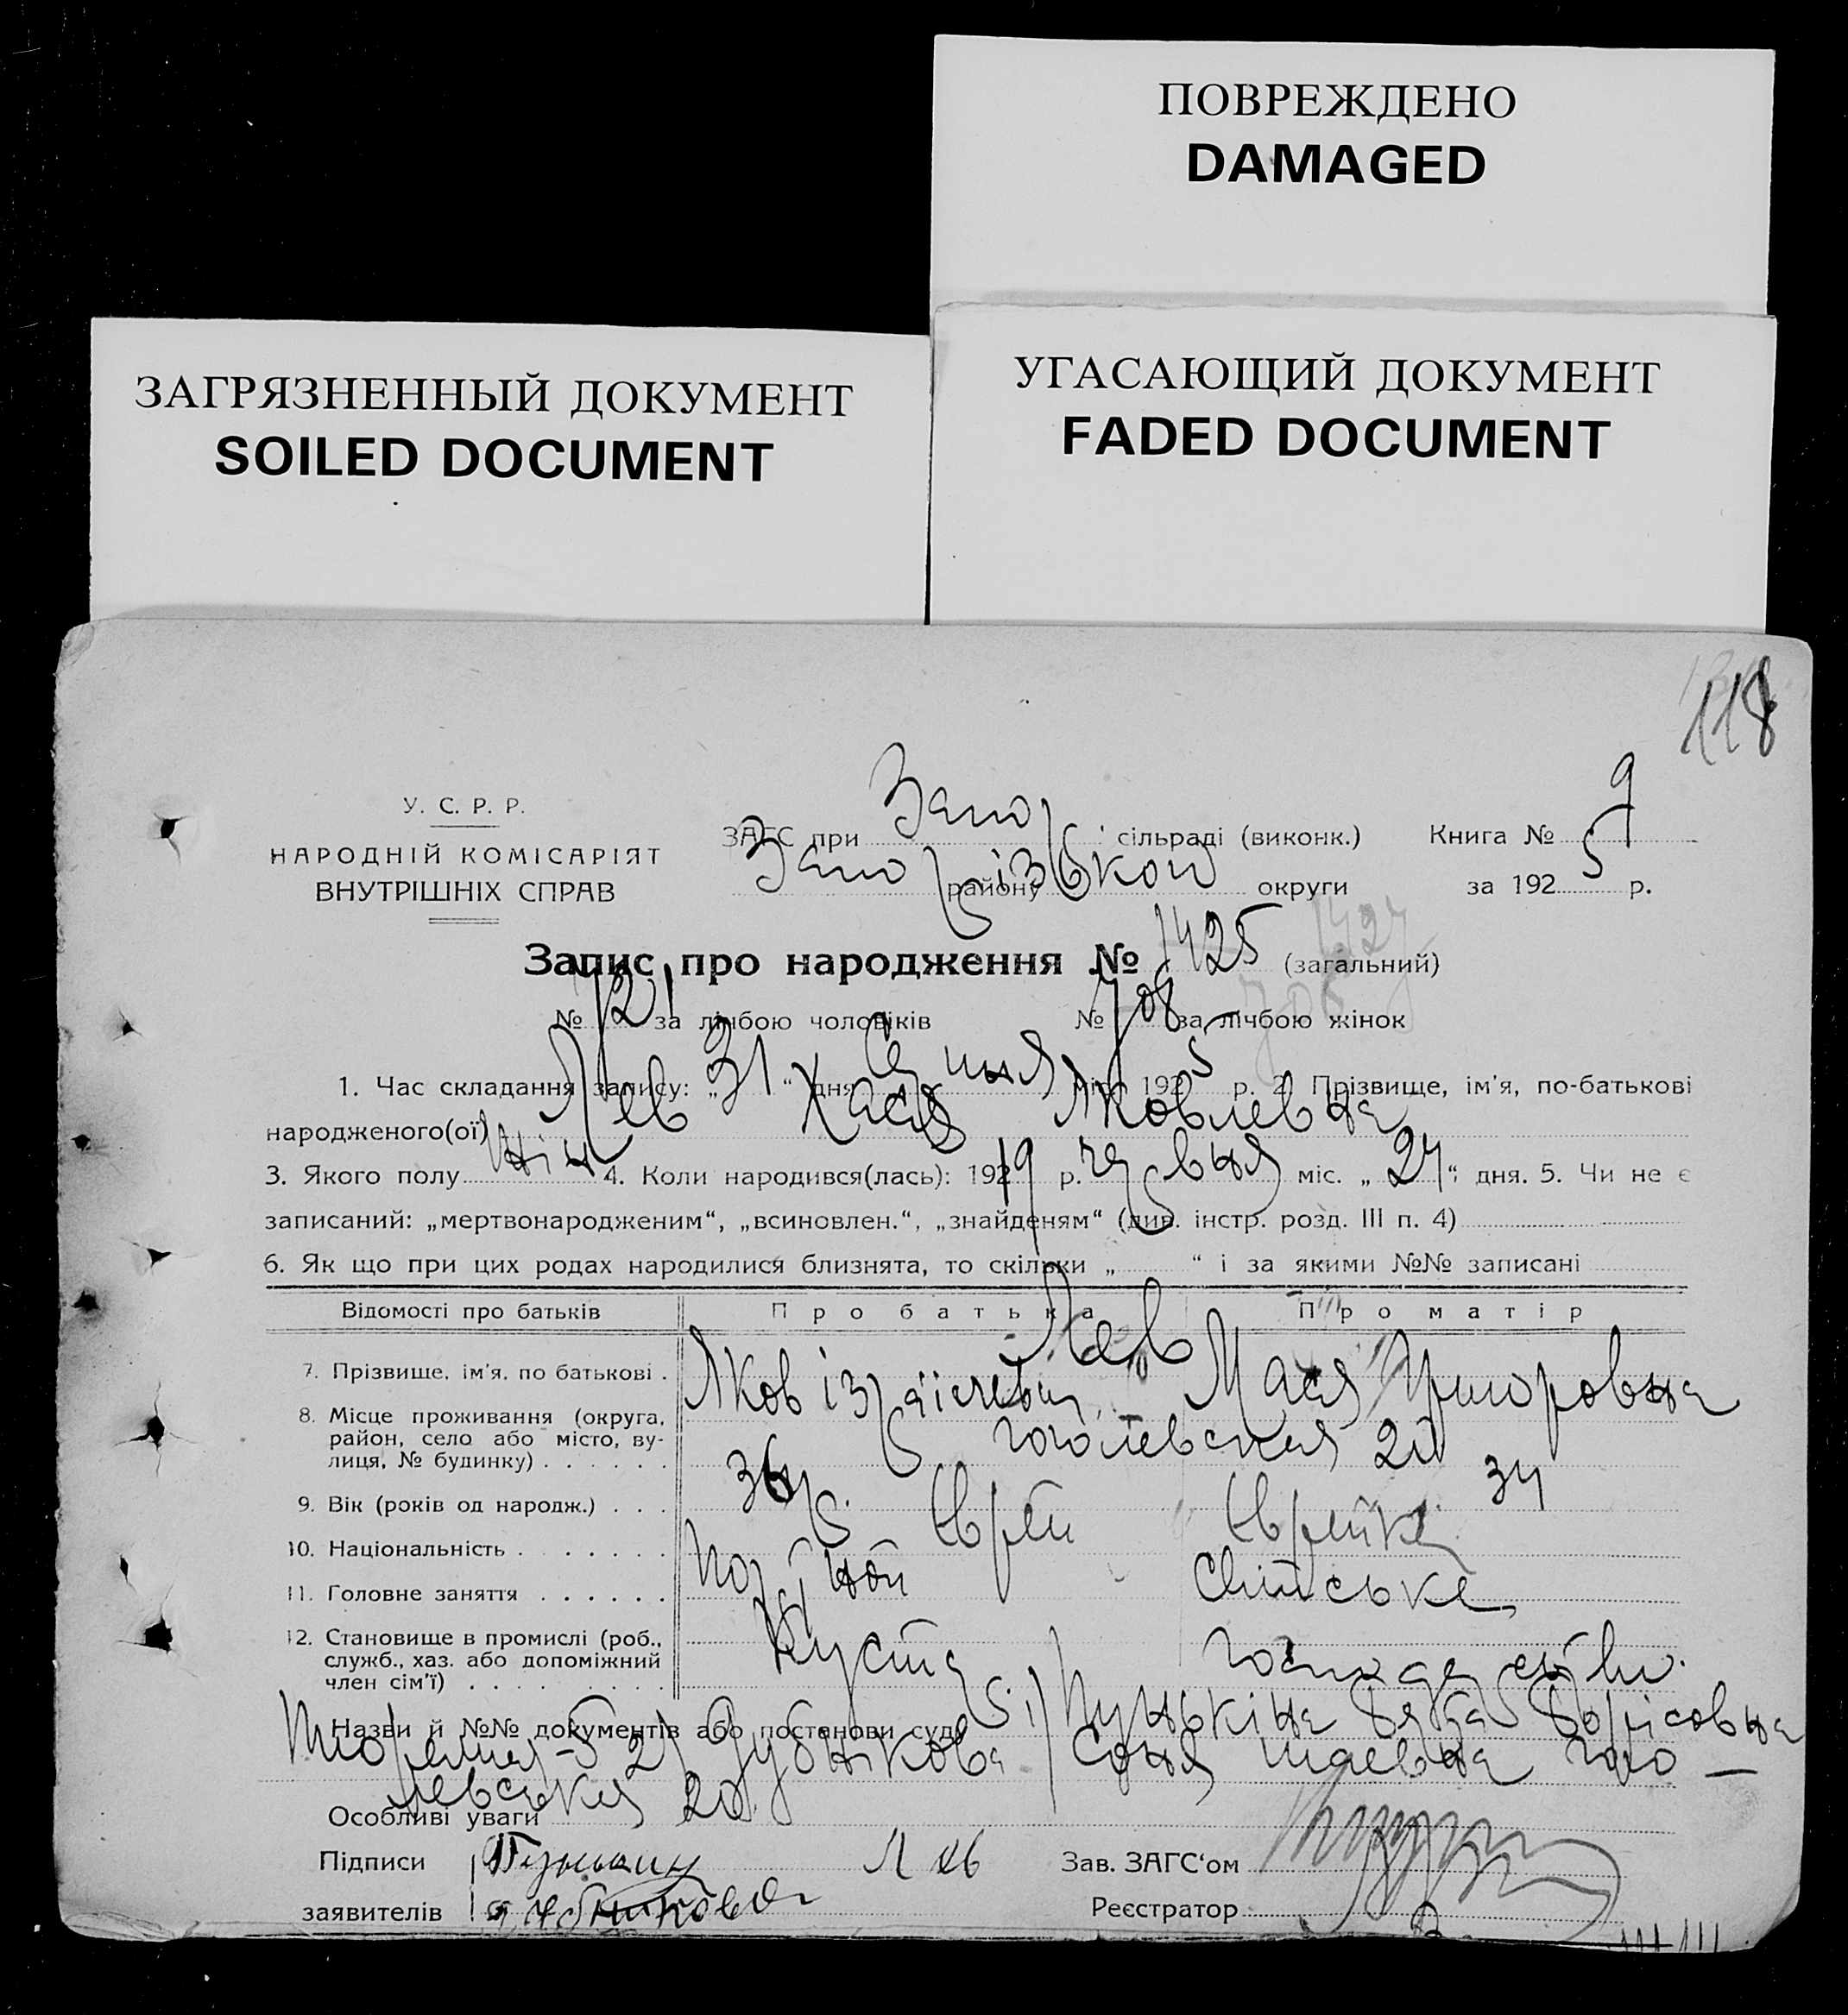 ПОВРЕЖДЕНО
DAMAGED
ЗАГРЯЗНЕННЫЙ ДОКУМЕНТ
SOILED DOCUMENT
УГАСАЮЩИЙ ДОКУМЕНТ
FADED DOCUMENT
118
У. С. Р. Р.
НАРОДНІЙ КОМІСАРІЯТ
ВНУТРІШНІХ СПРАВ
ЗАГС при Запор сільраді (виконк.) Книга № 9
Запорізької району округи за 1925 р.
Запис про народження № 1425 (загальний) 1424
№ 721 за лічбою чоловіків № 708 за лічбою жінок
1. Час складання запису: „31“ дня Серпня міс. 1925 р. 2. Прізвище, ім'я, по-батькові
народженого(ої) Лев Хася Яковлевна
3. Якого полу жін 4. Коли народився(лась): 19219 р. червня міс. „24“ дня. 5. Чи не є
записаний: „мертвонародженим“, „всиновлен.“, „знайденям“ (див. інстр. розд. III п. 4)
6. Як що при цих родах народилися близнята, то скільки „ “ і за якими №№ записані
Відомості про батьків Про батька Про матір
Лев
7. Прізвище, ім'я, по батькові . Яков Ізраїлевич Мася Григоровна
8. Місце проживання (округа,
район, село або місто, ву-
лиця, № будинку) . . . . . . Гоголевская 20
9. Вік (років од народж.) . . . 36 р. 34
10. Національність . . . . . . . Єврей Єврейка
11. Головне заняття . . . . . . Сільське
12. Становище в промислі (роб.,
служб., хаз. або допоміжний
член сім'ї) . . . . . . . . . Кустар
Назви й №№ документів або постанови суду 1) Борісовна
2) Дубнікова Соня Шаевна Гого-
левская 20
Особливі уваги
Підписи Лев Зав. ЗАГС'ом
заявителів Дубникова Реєстратор